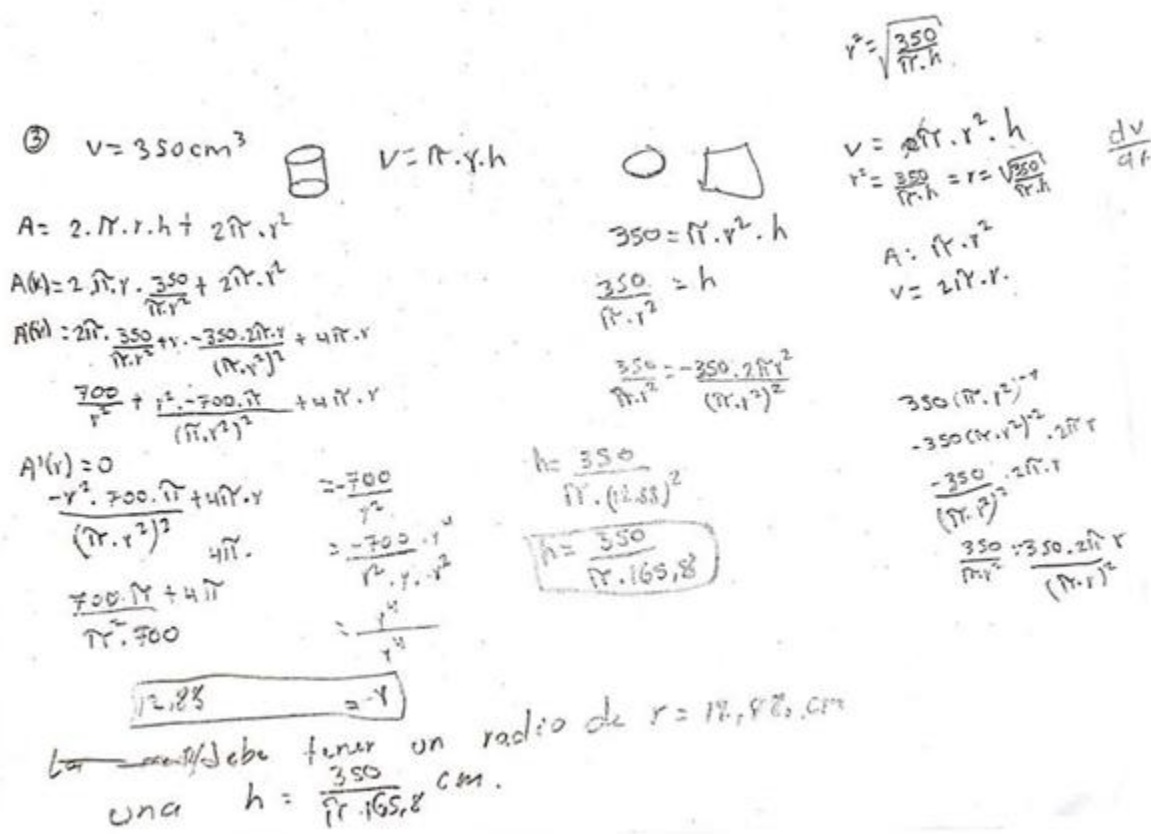 r² = √(350/(π.h))
③ V = 350 cm³
V = π.r.h
A = 2.π.r.h + 2π.r²
A(r) = 2.π.r.350/(π.r²) + 2π.r²
A'(r) = 2π.350/(π.r²) + r.-350.2π.r/(π.r²)² + 4π.r
700/r² + r².-700.π/(π.r²)² + 4π.r
A'(r) = 0
-r².700.π/(π.r²)² + 4π.r = -700/r²
4π. = -700.r⁴/(r².r.r²)
700.π + 4π/(π².700) = r⁴/r⁴
12,88 = -r
350 = π.r².h
350/(π.r²) = h
350/(π.r²) = -350.2πr²/(π.r²)²
h = 350/(π.(12.88)²)
h = 350/(π.165,8)
V = π.r².h
dv
r² = 350/(π.h) = r = √(350/(π.h))
A: π.r²
V = 2π.r.
350(π.r²)
-350(π.r²)⁻².2πr
-350/(π.r²)².2π.r
350/(π.r²) = 350.2πr/(π.r)²
debe tener un radio de r = cm
una h = 350/(π.165,8) cm.